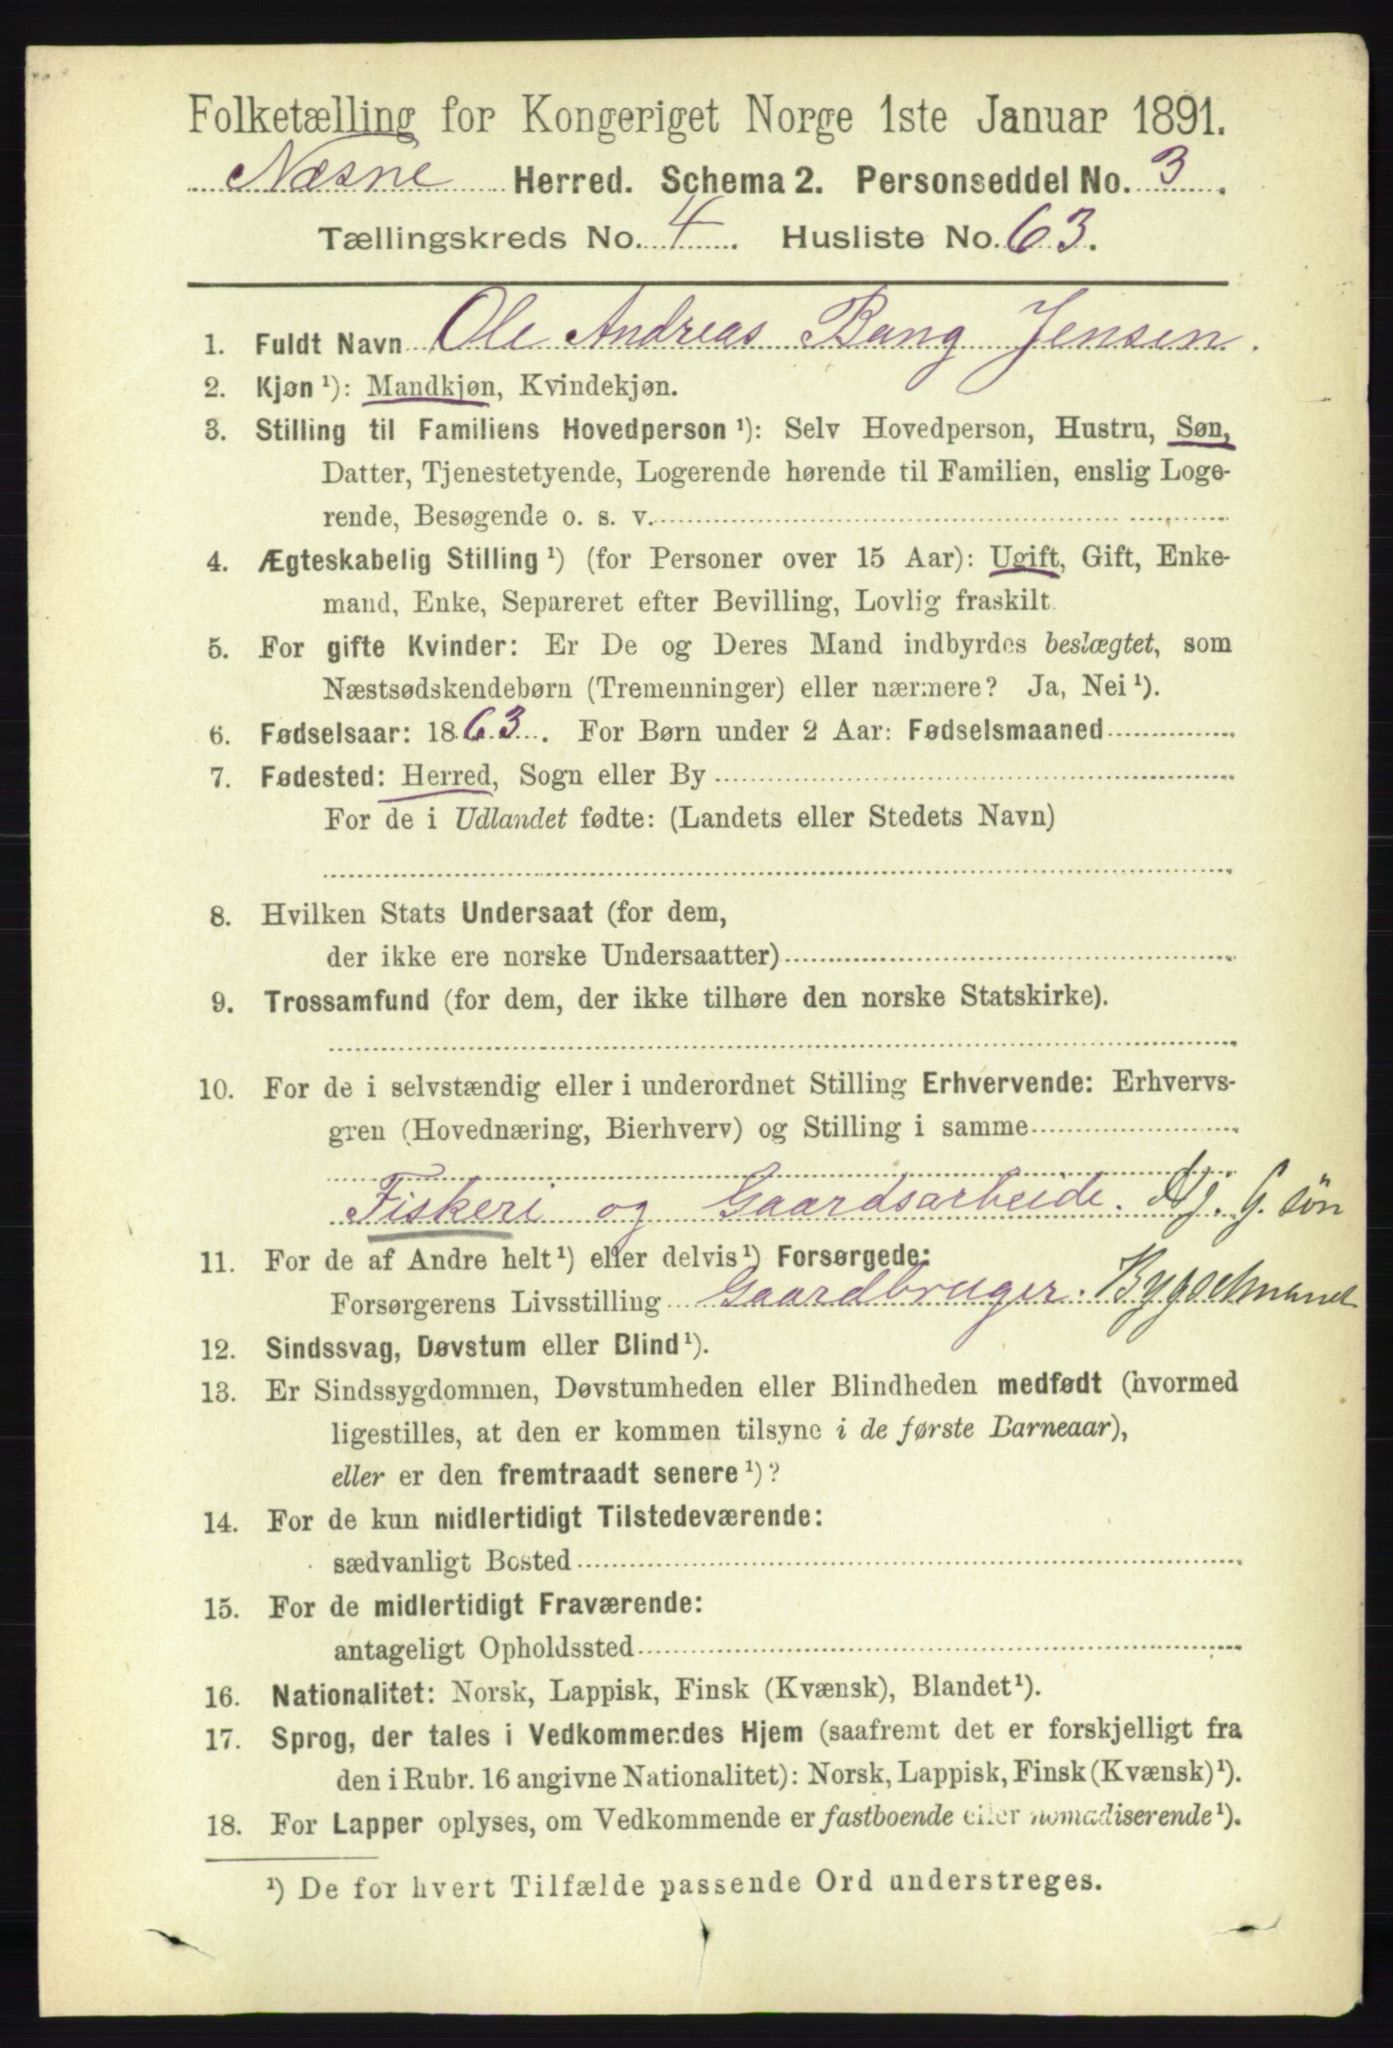 Folketælling for Kongeriget Norge 1ste Januar 1891.
Næsne Herred. Schema 2. Personseddel No. 3.
Tællingskreds No. 4. Husliste No. 63.
1. Fuldt Navn Ole Andreas Bang Jensen.
2. Kjøn ¹): Mandkjøn, Kvindekjøn.
3. Stilling til Familiens Hovedperson ¹): Selv Hovedperson, Hustru, Søn,
Datter, Tjenestetyende, Logerende hørende til Familien, enslig Loge-
rende, Besøgende o. s. v.
4. Ægteskabelig Stilling ¹) (for Personer over 15 Aar): Ugift, Gift, Enke-
mand, Enke, Separeret efter Bevilling, Lovlig fraskilt.
5. For gifte Kvinder: Er De og Deres Mand indbyrdes beslægtet, som
Næstsødskendebørn (Tremenninger) eller nærmere? Ja, Nei ¹).
6. Fødselsaar: 1863. For Børn under 2 Aar: Fødselsmaaned
7. Fødested: Herred, Sogn eller By
For de i Udlandet fødte: (Landets eller Stedets Navn)
8. Hvilken Stats Undersaat (for dem,
der ikke ere norske Undersaatter)
9. Trossamfund (for dem, der ikke tilhøre den norske Statskirke).
10. For de i selvstændig eller i underordnet Stilling Erhvervende: Erhvervs-
gren (Hovednæring, Bierhverv) og Stilling i samme
Fiskeri og Gaardsarbeide. Hj. G. søn
11. For de af Andre helt ¹) eller delvis ¹) Forsørgede:
Forsørgerens Livsstilling Gaardbruger.
12. Sindssvag, Døvstum eller Blind ¹).
13. Er Sindssygdommen, Døvstumheden eller Blindheden medfødt (hvormed
ligestilles, at den er kommen tilsyne i de første Barneaar),
eller er den fremtraadt senere ¹)?
14. For de kun midlertidigt Tilstedeværende:
sædvanligt Bosted
15. For de midlertidigt Fraværende:
antageligt Opholdssted
16. Nationalitet: Norsk, Lappisk, Finsk (Kvænsk), Blandet ¹).
17. Sprog, der tales i Vedkommendes Hjem (saafremt det er forskjelligt fra
den i Rubr. 16 angivne Nationalitet): Norsk, Lappisk, Finsk (Kvænsk) ¹).
18. For Lapper oplyses, om Vedkommende er fastboende eller nomadiserende ¹).
¹) De for hvert Tilfælde passende Ord understreges.